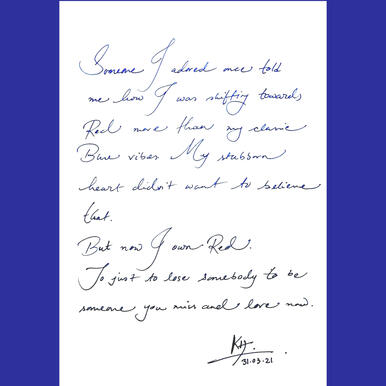 Someone I adored once told
me how I was shifting towards
Red more than my classic
Blue vibes My stubborn
heart didn't want to believe
that.
But now I own Red.
To just to lose somebody to be
someone you miss and love now.
KH.
31.03.21